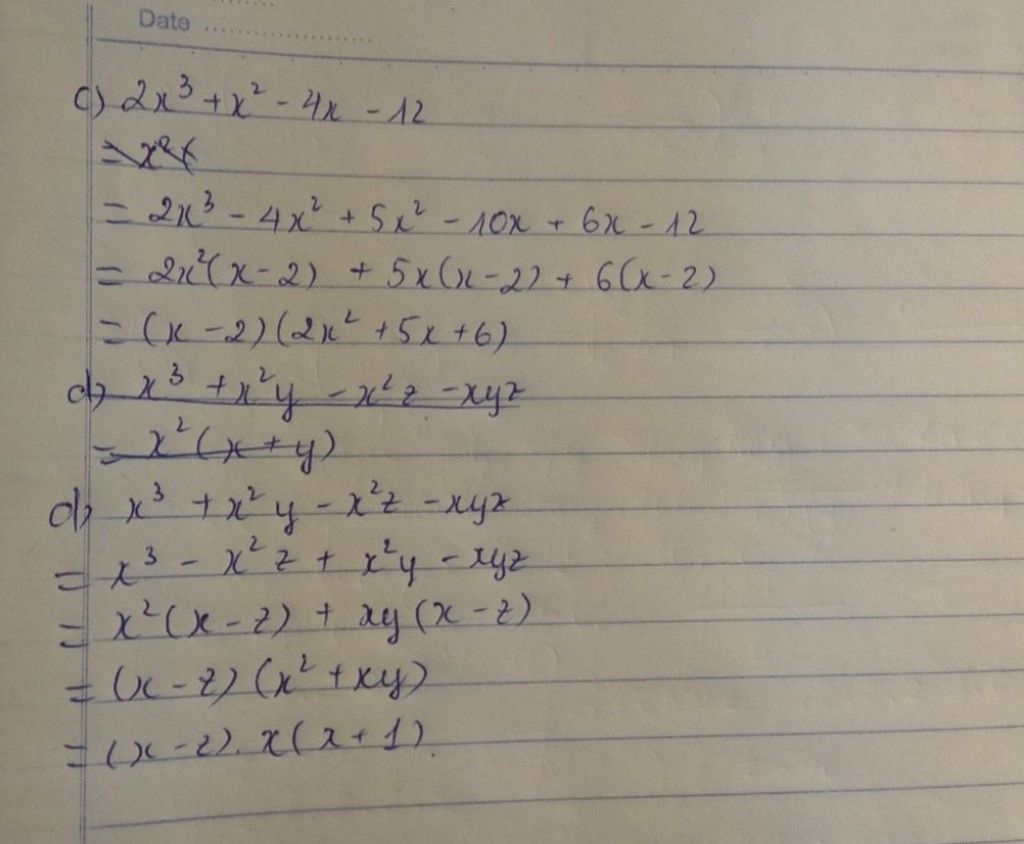 Date ........................
c) 2x³ + x² - 4x - 12
= x²(
= 2x³ - 4x² + 5x² - 10x + 6x - 12
= 2x²(x-2) + 5x(x-2) + 6(x-2)
= (x-2)(2x² + 5x + 6)
d) x³ + x²y - x²z - xyz
= x²(x+y)
d) x³ + x²y - x²z - xyz
= x³ - x²z + x²y - xyz
= x²(x-z) + xy(x-z)
= (x-z)(x² + xy)
= (x-z). x(x+1).